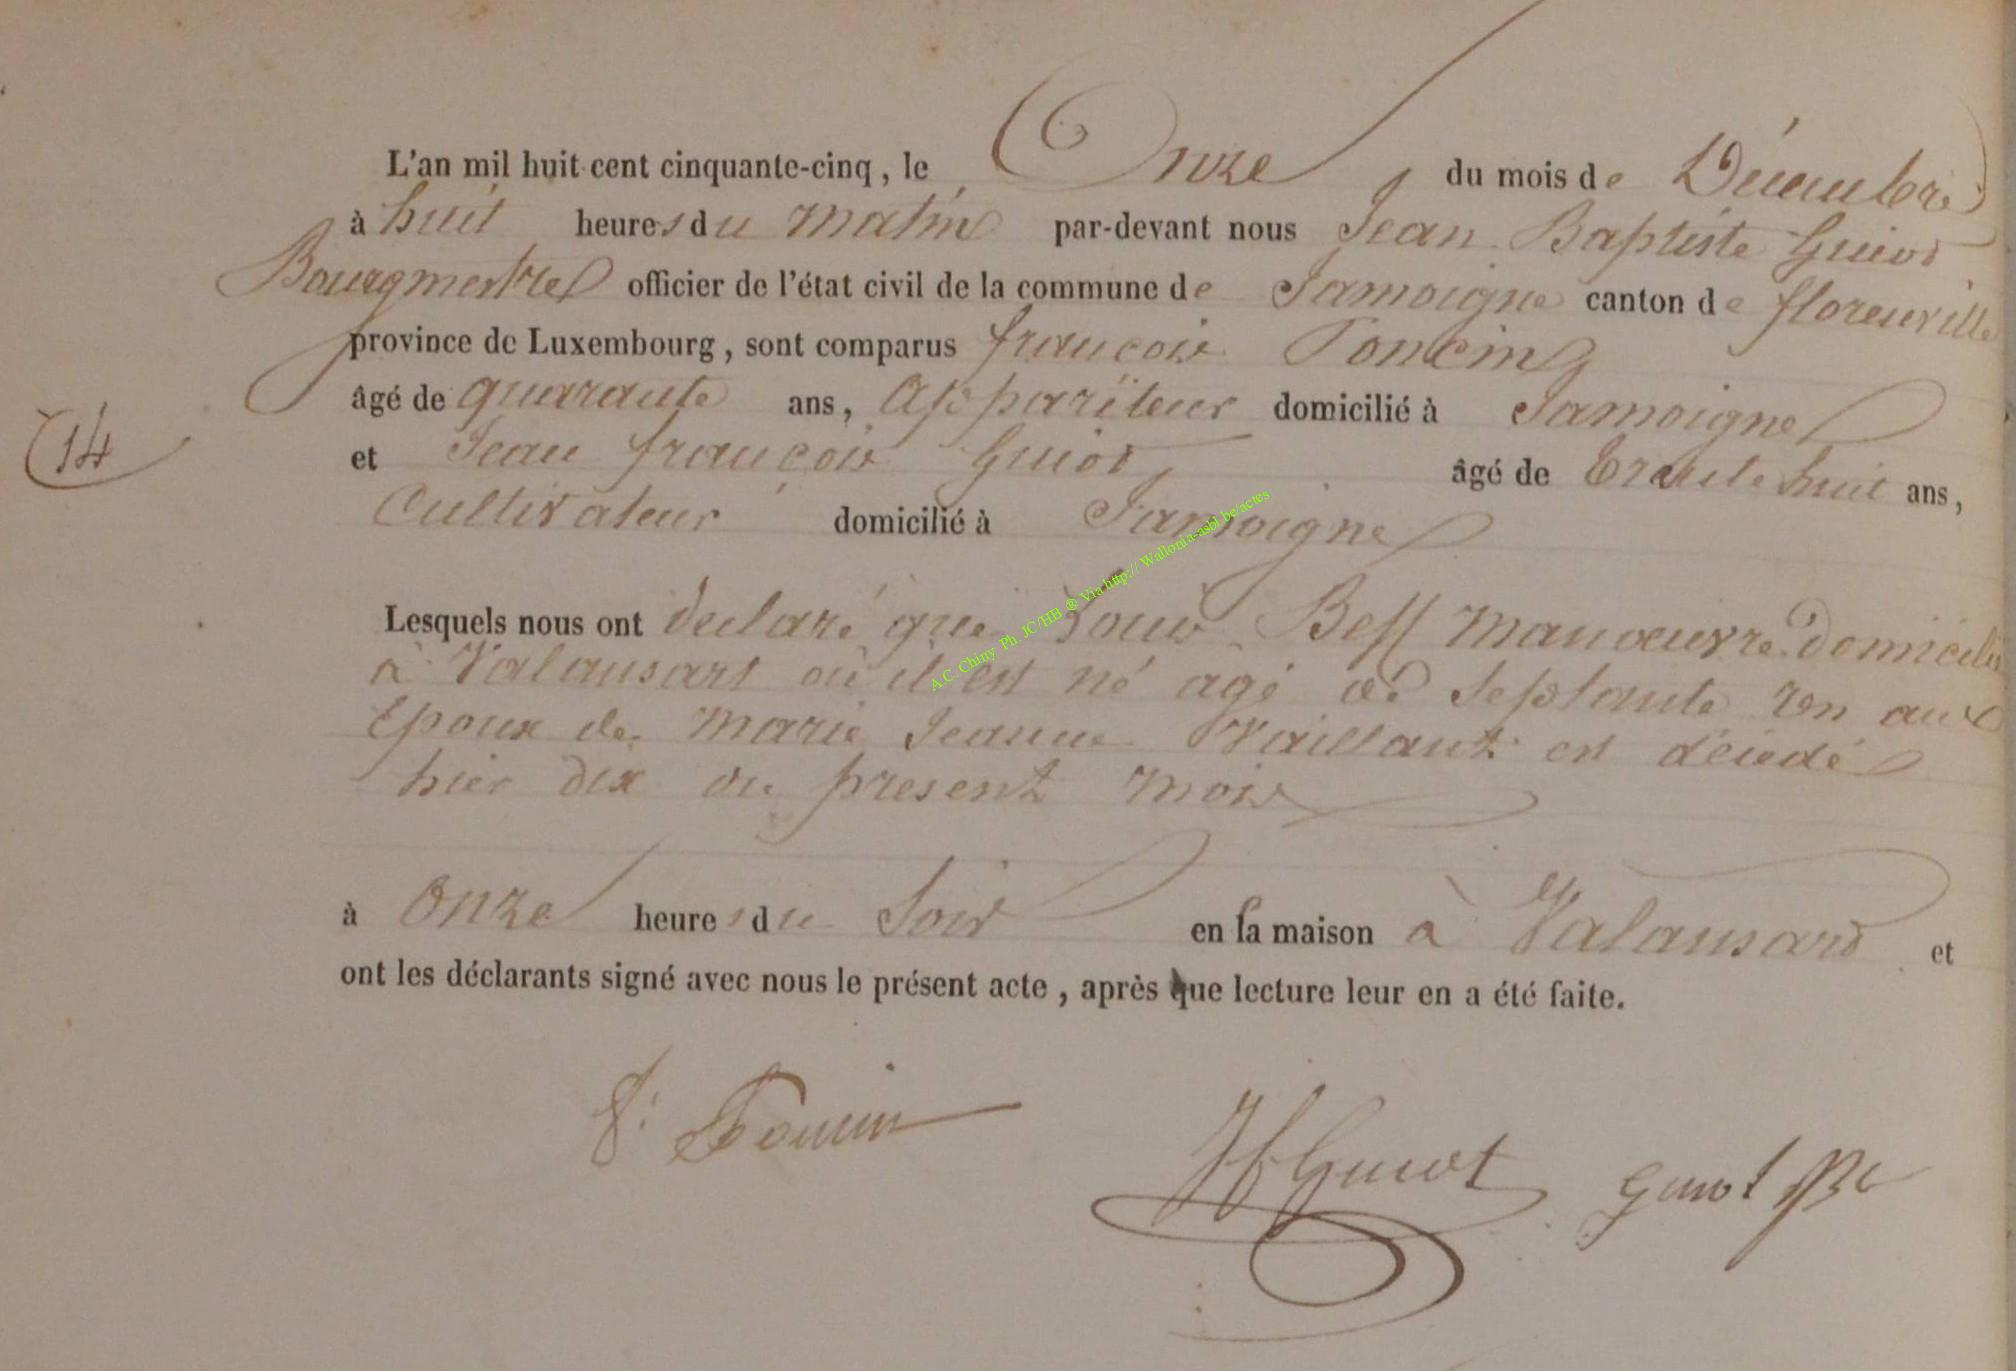 L'an mil huit cent cinquante-cinq, le Onze du mois de Décembre
à huit heures du matin par-devant nous Jean Baptiste Guiot
Bourgmestre officier de l'état civil de la commune de Jamoigne canton de florenville
province de Luxembourg, sont comparus françois Poncin
âgé de quarante ans, Appariteur domicilié à Jamoigne
14
et Jean françois Guiot, âgé de trente huit ans,
Cultivateur domicilié à Jamoigne
Lesquels nous ont declaré que Louis Bess manoeuvre domicilié
à Valansart où il est né agé de septante un ans
Epoux de Marie Jeanne Vaillant est décedé
hier dix du present mois
à Onze heures du soir en sa maison à Valansard et
ont les déclarants signé avec nous le présent acte, après que lecture leur en a été faite.
f: Poncin
JfGuiot Guiot JB
A.C. Chiny Ph JC/HB ® Via http:// Wallonia-asbl.be/actes